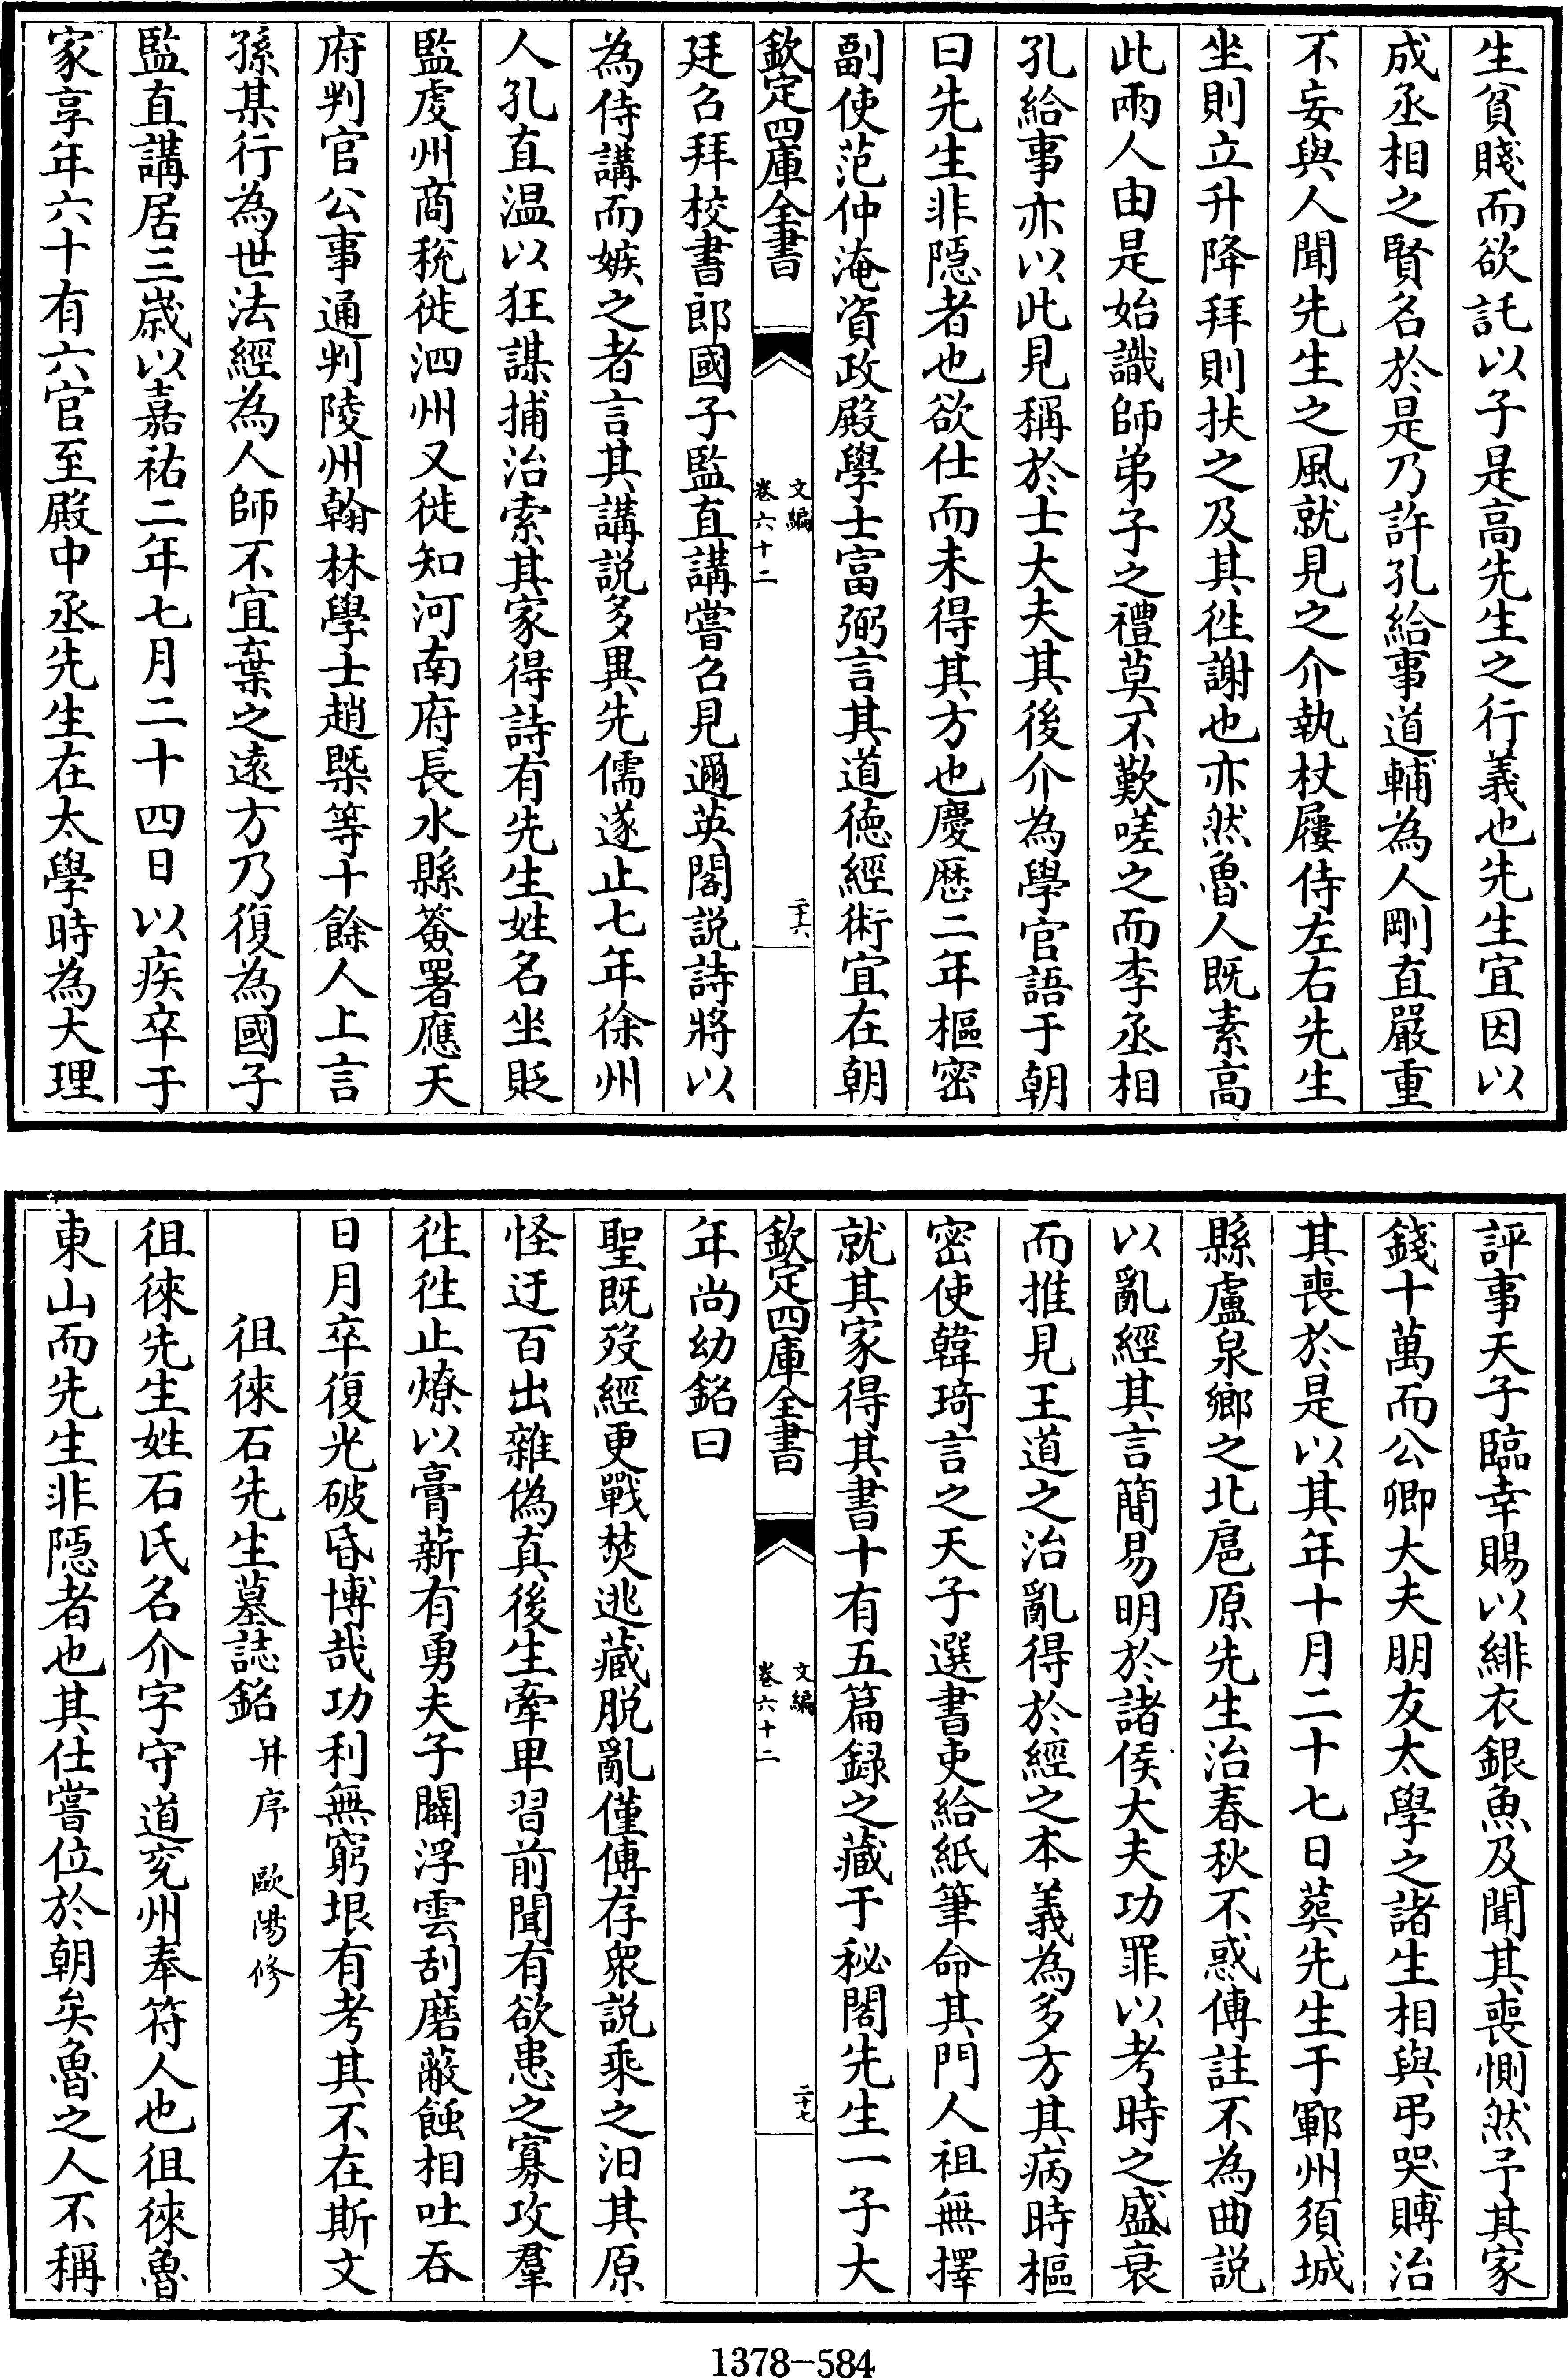 生貧賤而欲託以子是高先生之行義也先生宜因以
成丞相之賢名於是乃許孔給事道輔為人剛直嚴重
不妄與人聞先生之風就見之介執杖屨侍左右先生
坐則立升降拜則扶之及其徃謝也亦然魯人既素高
此兩人由是始識師弟子之禮莫不歎嗟之而李丞相
孔給事亦以此見稱於士大夫其後介為學官語于朝
曰先生非隠者也欲仕而未得其方也慶厯二年樞密
副使范仲淹資政殿學士富弼言其道徳經術宜在朝
欽定四庫全書
文編
卷六十二
二十六
廷召拜校書郎國子監直講嘗召見邇英閣説詩將以
為侍講而嫉之者言其講説多異先儒遂止七年徐州
人孔直温以狂謀捕治索其家得詩有先生姓名坐貶
監䖍州商税徙泗州又徙知河南府長水縣簽署應天
府判官公事通判陵州翰林學士趙槩等十餘人上言
孫某行為世法經為人師不宜棄之逺方乃復為國子
監直講居三嵗以嘉祐二年七月二十四日以疾卒于
家享年六十有六官至殿中丞先生在太學時為大理
評事天子臨幸賜以緋衣銀魚及聞其喪惻然予其家
錢十萬而公卿大夫朋友太學之諸生相與弔哭賻治
其喪於是以其年十月二十七日葬先生于鄆州須城
縣盧泉鄉之北扈原先生治春秋不惑傳註不為曲説
以亂經其言簡易明於諸侯大夫功罪以考時之盛衰
而推見王道之治亂得於經之本義為多方其病時樞
密使韓琦言之天子選書吏給紙筆命其門人祖無擇
就其家得其書十有五篇録之藏于秘閣先生一子大
欽定四庫全書
文編
卷六十二
二十七
年尚幼銘曰
聖既歿經更戰焚逃藏脱亂僅傳存衆説乘之汨其原
怪迂百出雜偽真後生牽卑習前聞有欲患之寡攻羣
徃徃止燎以膏薪有勇夫子闢浮雲刮磨蔽蝕相吐吞
日月卒復光破昏博哉功利無窮垠有考其不在斯文
徂徠石先生墓誌銘 并序 歐陽修
徂徠先生姓石氏名介字守道兖州奉符人也徂徠魯
東山而先生非隠者也其仕嘗位於朝矣魯之人不稱
1378-584